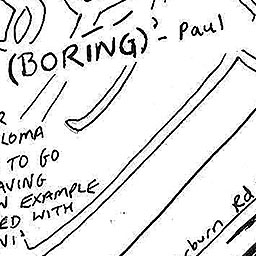 (BORING)' - Paul
R
LOMA
TO GO
AVING
N EXAMPLE
ED WITH
NI'
burn Rd